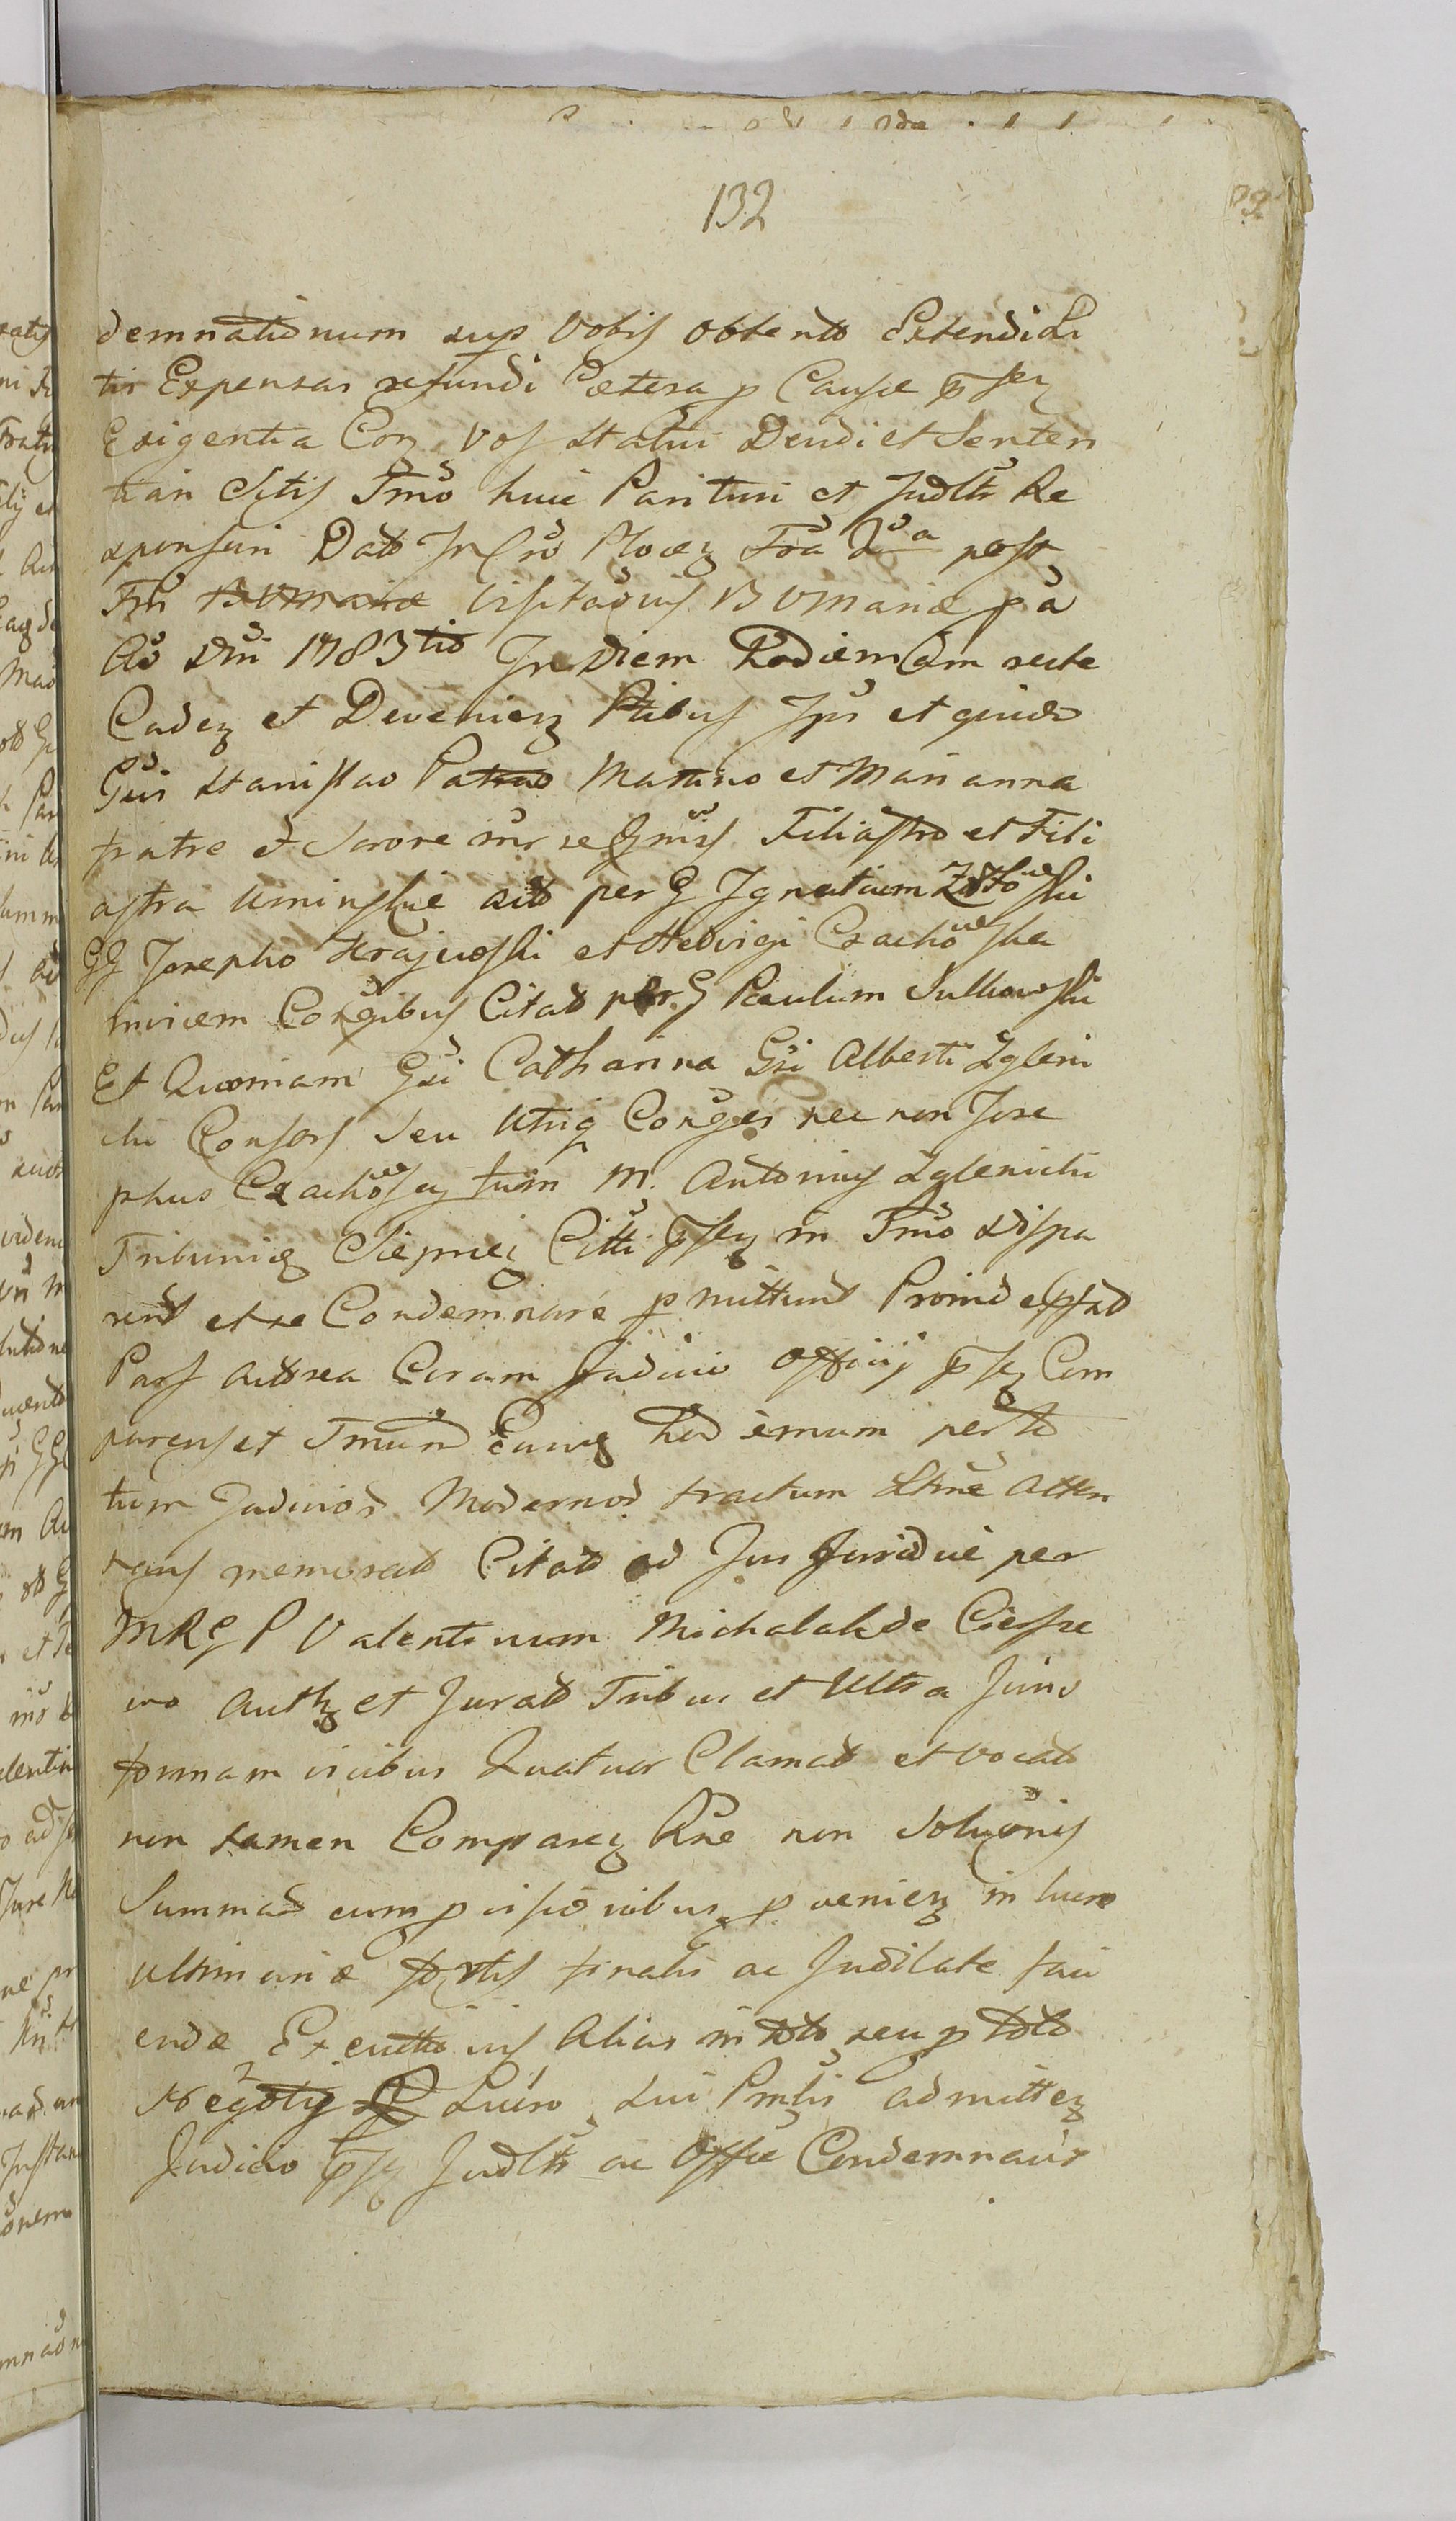 132
demnationum sup Vobis obtento Extendi Li
tis Expensas refundi Cætera p Causæ pñsez
Exigentia Coz Vos statui Deudi et Senten
tian Sitis Tmo huic Parituri et Judltr Re
sponsuri Dat In Cro Plocz Fra 2da post
Fm Visitaonis B V Mariæ pa
Ao Dni 1783tio In Diem Hodiernam recte
Cadez et Devenienz Ptibus Ipis et quidem
Gsis Stanislao Martino et Marianna
fratre et Sorore inr se Gnis Filiastro et Fili
astra Uminskie acto per G Ignatium
GG Josepho Krajewski et Hedvigi Czachowska
invicem Conjgibus Citat per G Paulum Sulkowski
Et Quoniam Gsi Catharina Gsi Alberti Zgleni
cki Consors seu Utriq Conjges nec non Jose
phus Czachowsey tum M. Antonius Zglenicki
Tribunig Sieprcz Citti pñsez in Tmo Dispa
rent et se Condemnare p mittunt Proind
Pars Actorea Coram Judicio Officij pñsez Com
parens et Tmum Euing hodiernum per to
tum Judicior Modernor tractum Stme Atten
tans memorat Citat ad Jus Juridice per
MRG P Valentinum Michalak de Ciesze
wo Auth et Jurat Tribus et Ultra Juris
formam vicibus Quatuor Clamat et vocat
non tamen Comparez Rne non Soluonis
Summar cum p visionibus p veniez in lucro
ultimariæ fortis finalis ac Judilate faci
endæ Executionis Alias in toto seu p toto
Negotij Lucro sui Pmtis admittez
Judicio pñsez Judltr ac Offse Condemnavit